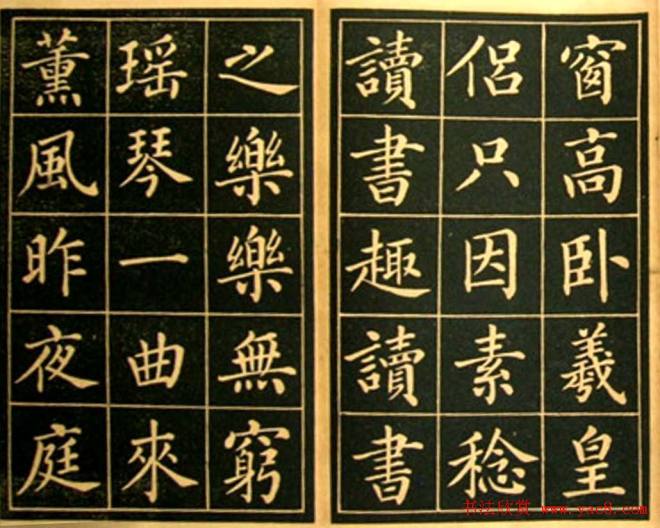 窗高卧羲皇
侣只因素稔
讀書趣讀書
之樂樂無窮
瑶琴一曲來
薰風昨夜庭
书法欣赏 www.yac8.com